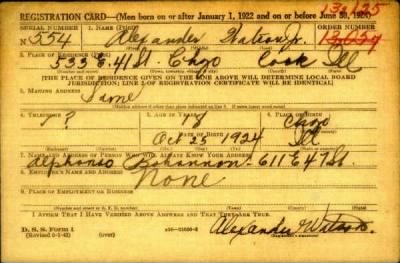 REGISTRATION CARD—(Men born on or after January 1, 1922 and on or before June 30, 1924)
SERIAL NUMBER 1. NAME (Print) ORDER NUMBER
554 Alexander Watson Jr.
2. PLACE OF RESIDENCE (Print)
533 E. 41 St. Chgo Cook Ill
[THE PLACE OF RESIDENCE GIVEN ON THE LINE ABOVE WILL DETERMINE LOCAL BOARD
JURISDICTION; LINE 2 OF REGISTRATION CERTIFICATE WILL BE IDENTICAL]
3. MAILING ADDRESS
Same
4. TELEPHONE 5. AGE IN YEARS 6. PLACE OF BIRTH
18 Chgo
DATE OF BIRTH
Oct 25 1924 Ill
7. NAME AND ADDRESS OF PERSON WHO WILL ALWAYS KNOW YOUR ADDRESS
Alphonso Bohannon - 611 E 41 St.
8. EMPLOYER'S NAME AND ADDRESS
None
9. PLACE OF EMPLOYMENT OR BUSINESS
I AFFIRM THAT I HAVE VERIFIED ABOVE ANSWERS AND THAT THEY ARE TRUE.
D. S. S. Form 1
(over)
Alexander Watson